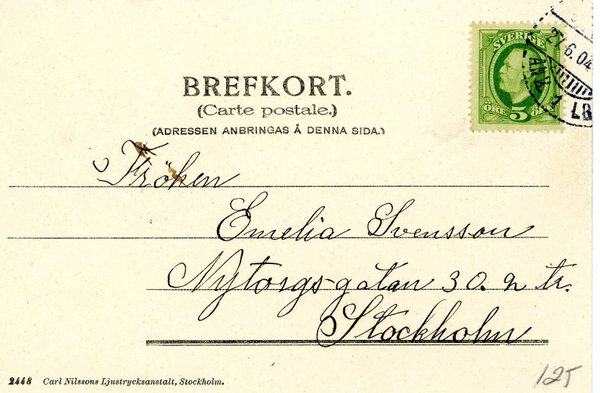 SVERIGE
ÖRE 5 ÖRE
27.6.04
BREFKORT.
(Carte postale.)
(ADRESSEN ANBRINGAS Å DENNA SIDA.)
Fröken
Emelia Svensson
Nytorgs-gatan 30. 2 tr.
Stockholm
2448 Carl Nilssons Ljustrycksanstalt, Stockholm.
125